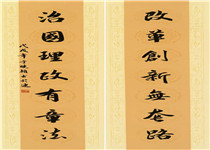 改革創新無套路
治國理政有章法